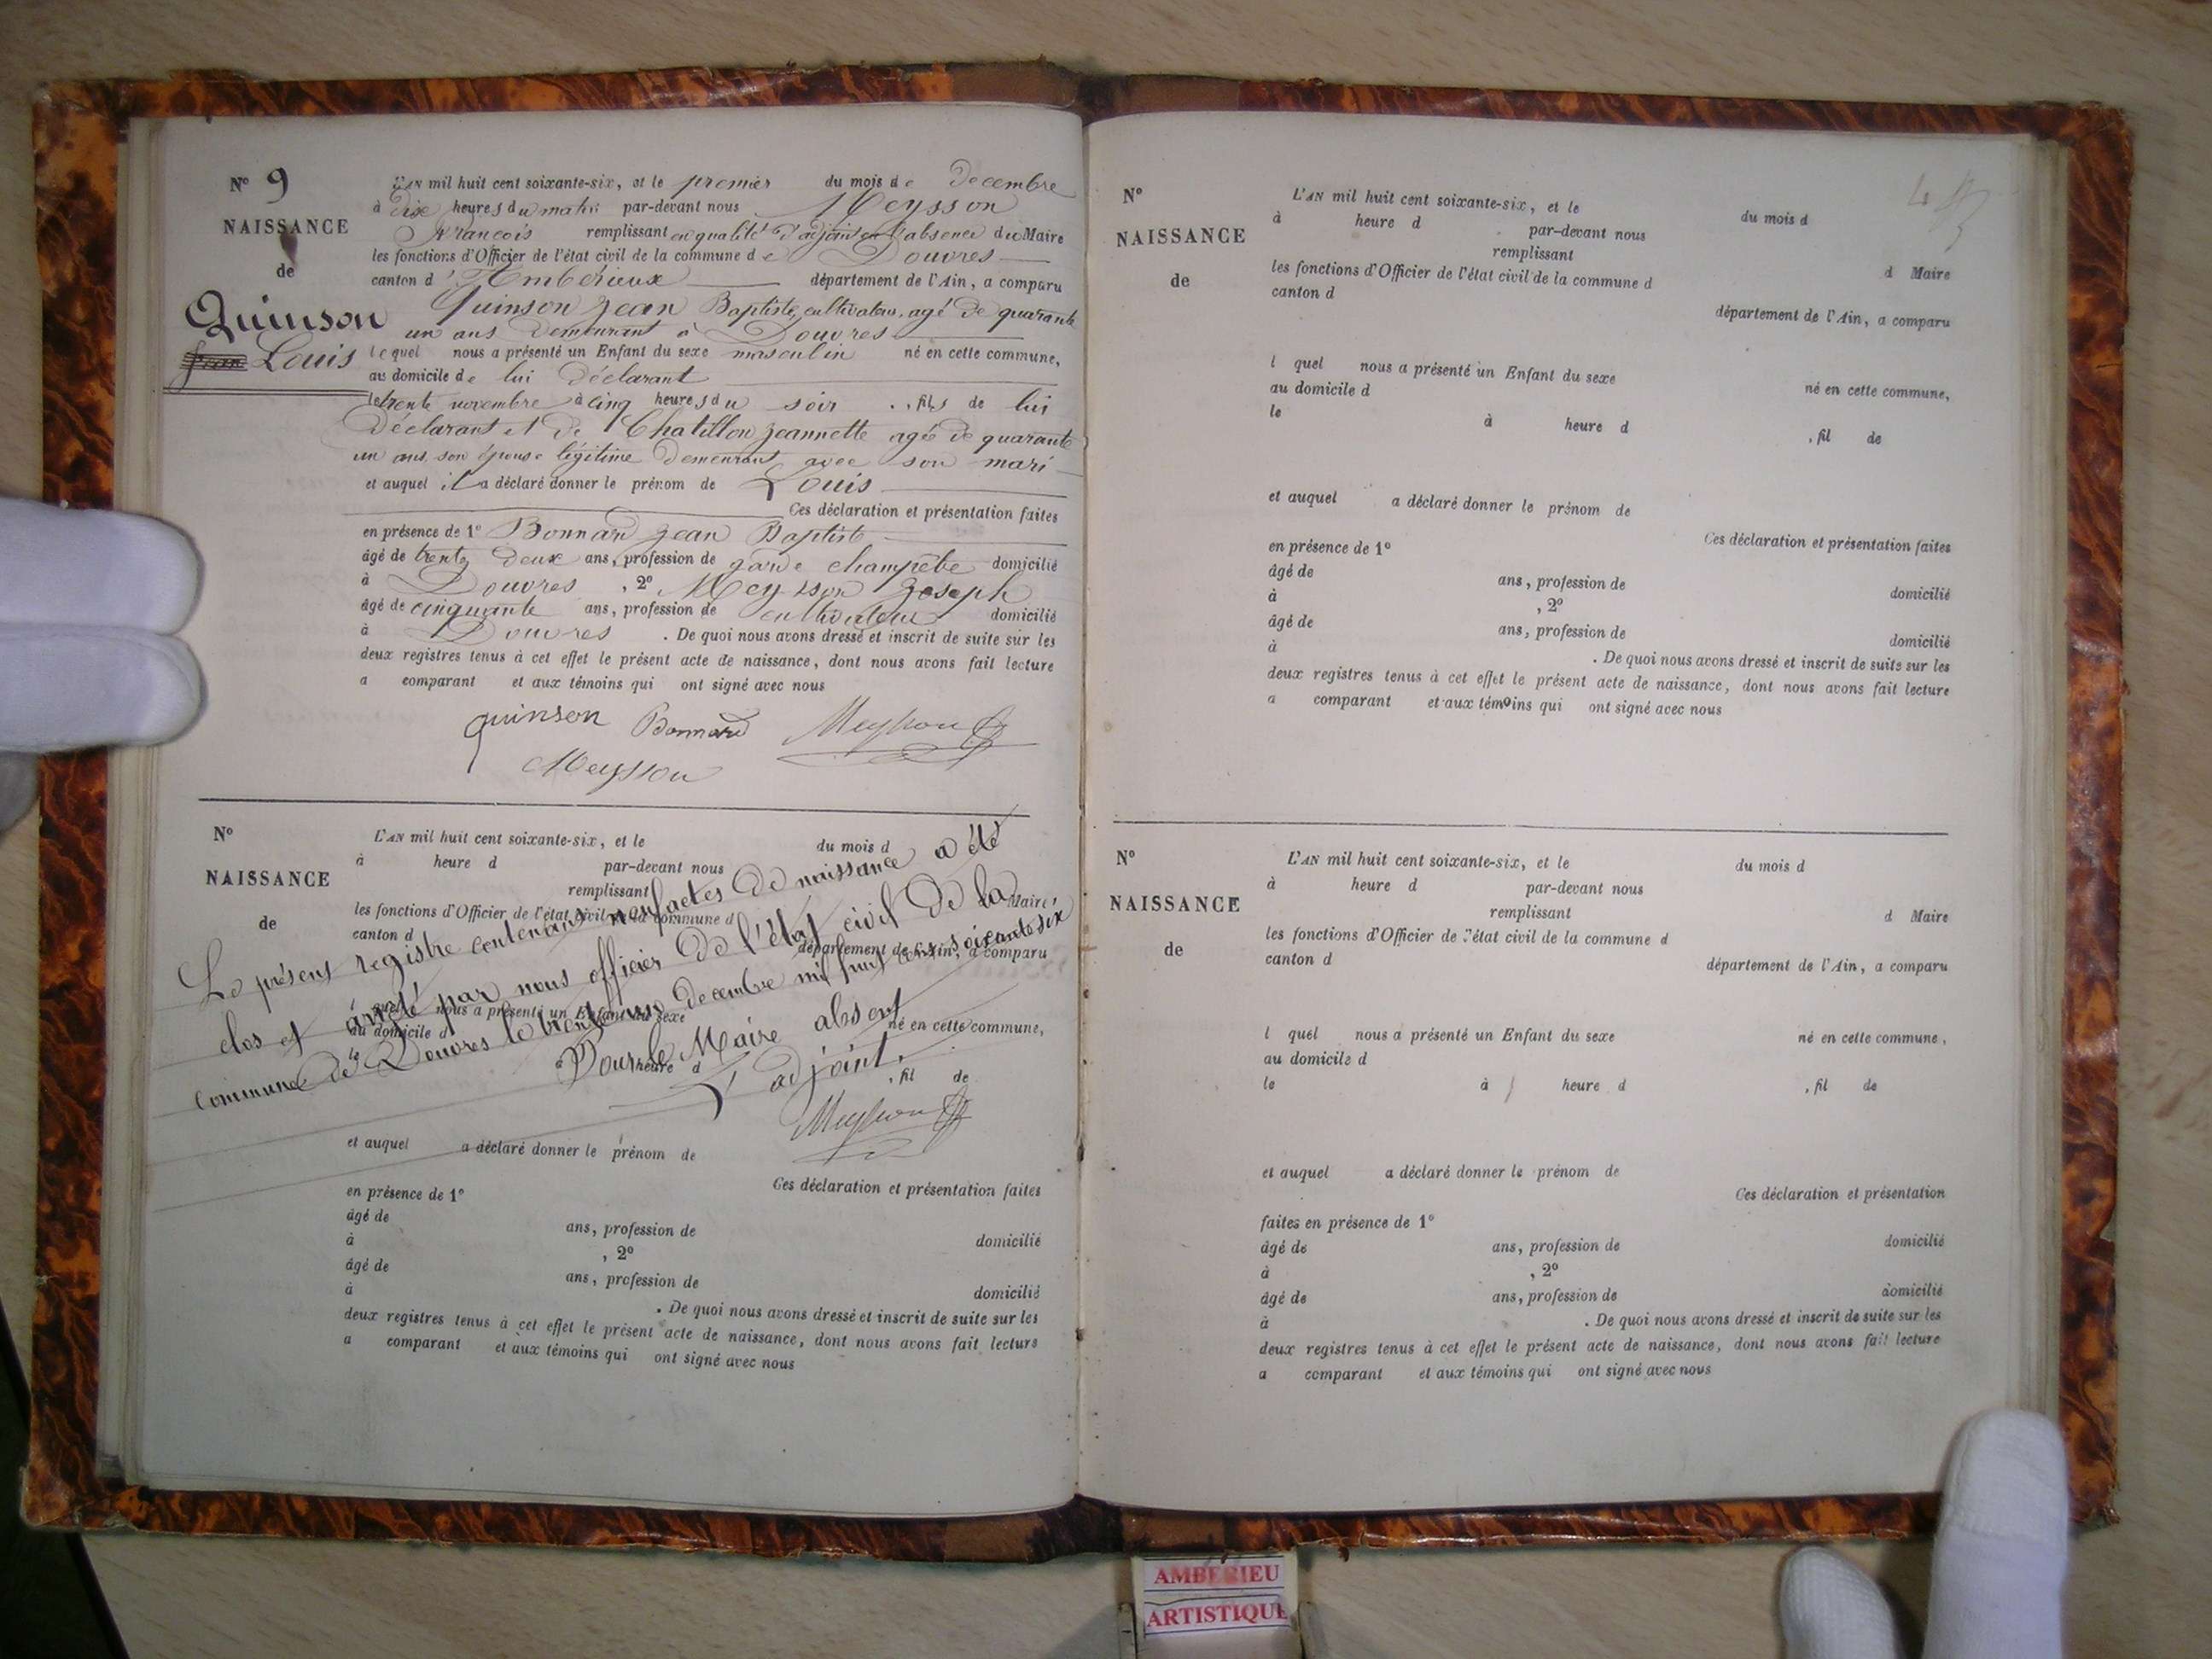 N° 9
NAISSANCE
de
Quinson
Louis
L'AN mil huit cent soixante-six, et le premier du mois de Decembre
à dix heures du matin par-devant nous Meysson
François remplissant en qualité d'adjoint en l'absence du Maire
les fonctions d'Officier de l'état civil de la commune de Douvres
canton d'Ambérieux département de l'Ain, a comparu
Quinson Jean Baptiste, cultivateur, agé de quarante
un ans demeurant à Douvres
lequel nous a présenté un Enfant du sexe masculin né en cette commune,
au domicile de lui Déclarant
le trente novembre à cinq heures du soir , fils de lui
Déclarant et de Chatillon Jeannette agée de quarante
un ans son épouse légitime demeurant avec son mari
et auquel il a déclaré donner le prénom de Louis
Ces déclaration et présentation faites
en présence de 1° Bonnard Jean Baptiste
âgé de trente deux ans, profession de garde champêtre domicilié
à Douvres , 2° Meysson Joseph
âgé de cinquante ans, profession de cultivateur domicilié
à Douvres . De quoi nous avons dressé et inscrit de suite sur les
deux registres tenus à cet effet le présent acte de naissance, dont nous avons fait lecture
a comparant et aux témoins qui ont signé avec nous
quinson Bonnard Meysson
Meysson
N°
NAISSANCE
de
L'AN mil huit cent soixante-six, et le du mois d
à heure d par-devant nous
remplissant Maire
les fonctions d'Officier de l'état civil de la commune d
canton d département de l'Ain, a comparu
quel nous a présenté un Enfant du sexe né en cette commune,
au domicile d
le à heure d , fil de
Le présent registre contenant neuf actes de naissance a été
clos et arrêté par nous officier de l'état civil de la
commune de Douvres le trente un decembre mil huit cent soixante six
Pour le Maire absent
L'adjoint.
Meysson
et auquel a déclaré donner le prénom de
Ces déclaration et présentation faites
en présence de 1°
âgé de ans, profession de domicilié
à , 2°
âgé de ans, profession de domicilié
à . De quoi nous avons dressé et inscrit de suite sur les
deux registres tenus à cet effet le présent acte de naissance, dont nous avons fait lecture
a comparant et aux témoins qui ont signé avec nous
N°
NAISSANCE
de
L'AN mil huit cent soixante-six, et le du mois d
à heure d par-devant nous
remplissant d Maire
les fonctions d'Officier de l'état civil de la commune d
canton d département de l'Ain, a comparu
l quel nous a présenté un Enfant du sexe né en cette commune,
au domicile d
le à heure d , fil de
et auquel a déclaré donner le prénom de
Ces déclaration et présentation faites
en présence de 1°
âgé de ans, profession de domicilié
à , 2°
âgé de ans, profession de domicilié
à . De quoi nous avons dressé et inscrit de suite sur les
deux registres tenus à cet effet le présent acte de naissance, dont nous avons fait lecture
a comparant et aux témoins qui ont signé avec nous
N°
NAISSANCE
de
L'AN mil huit cent soixante-six, et le du mois d
à heure d par-devant nous
remplissant d Maire
les fonctions d'Officier de l'état civil de la commune d
canton d département de l'Ain, a comparu
l quel nous a présenté un Enfant du sexe né en cette commune,
au domicile d
le à heure d , fil de
et auquel a déclaré donner le prénom de
Ces déclaration et présentation
faites en présence de 1°
âgé de ans, profession de domicilié
à , 2°
âgé de ans, profession de domicilié
à . De quoi nous avons dressé et inscrit de suite sur les
deux registres tenus à cet effet le présent acte de naissance, dont nous avons fait lecture
a comparant et aux témoins qui ont signé avec nous
AMBERIEU
ARTISTIQUE